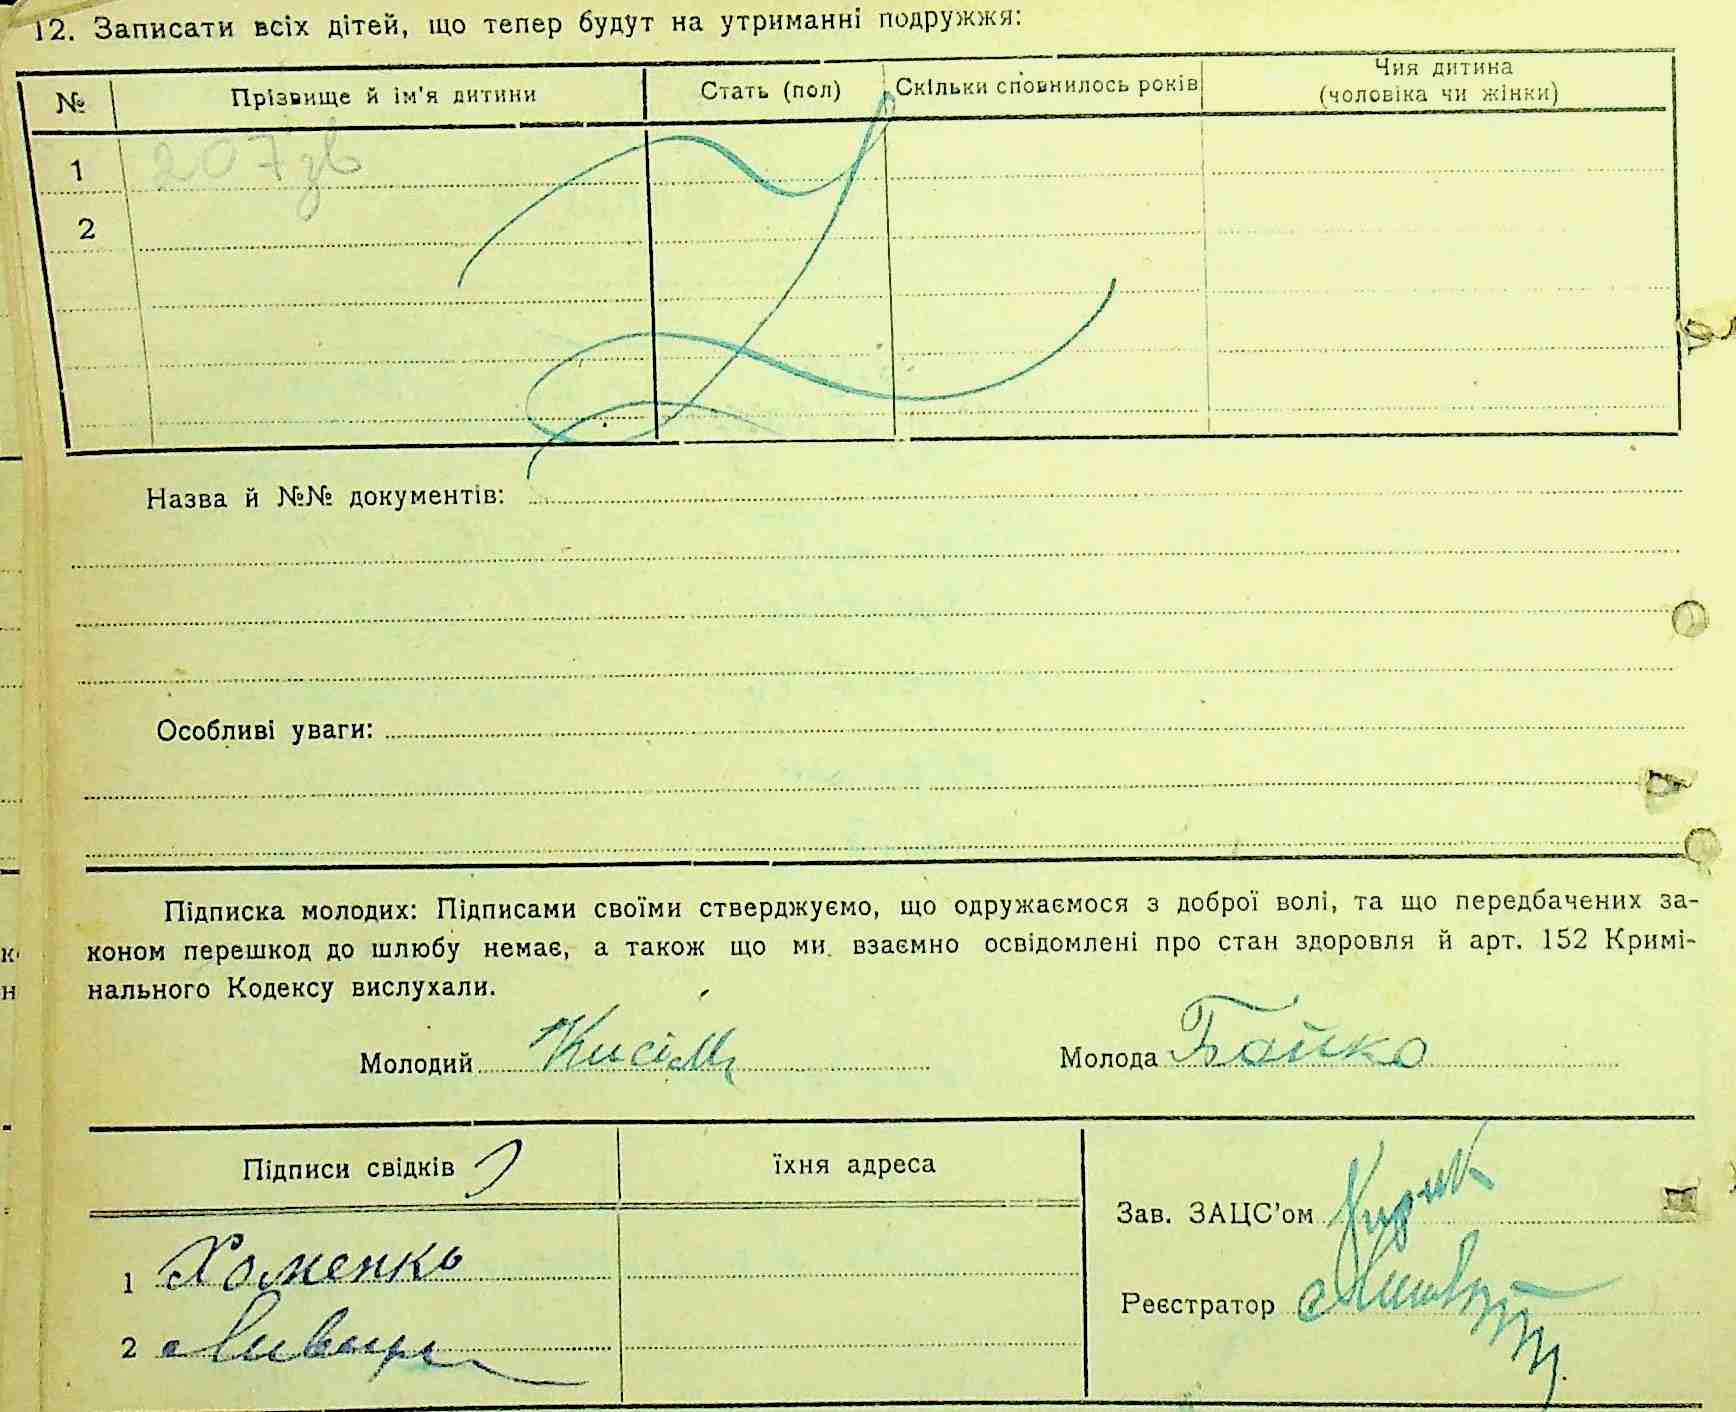 12. Записати всіх дітей, що тепер будут на утриманні подружжя:
№ Прізвище й ім'я дитини Стать (пол) Скільки сповнилось років Чия дитина (чоловіка чи жінки)
1 207
2
Назва й №№ документів:
Особливі уваги:
Підписка молодих: Підписами своїми стверджуємо, що одружаємося з доброї волі, та що передбачених за-
коном перешкод до шлюбу немає, а також що ми взаємно освідомлені про стан здоровля й арт. 152 Кримі-
нального Кодексу вислухали.
Молодий Молода Бойко
Підписи свідків їхня адреса
Зав. ЗАЦС'ом
1 Хоменко
Реєстратор
2